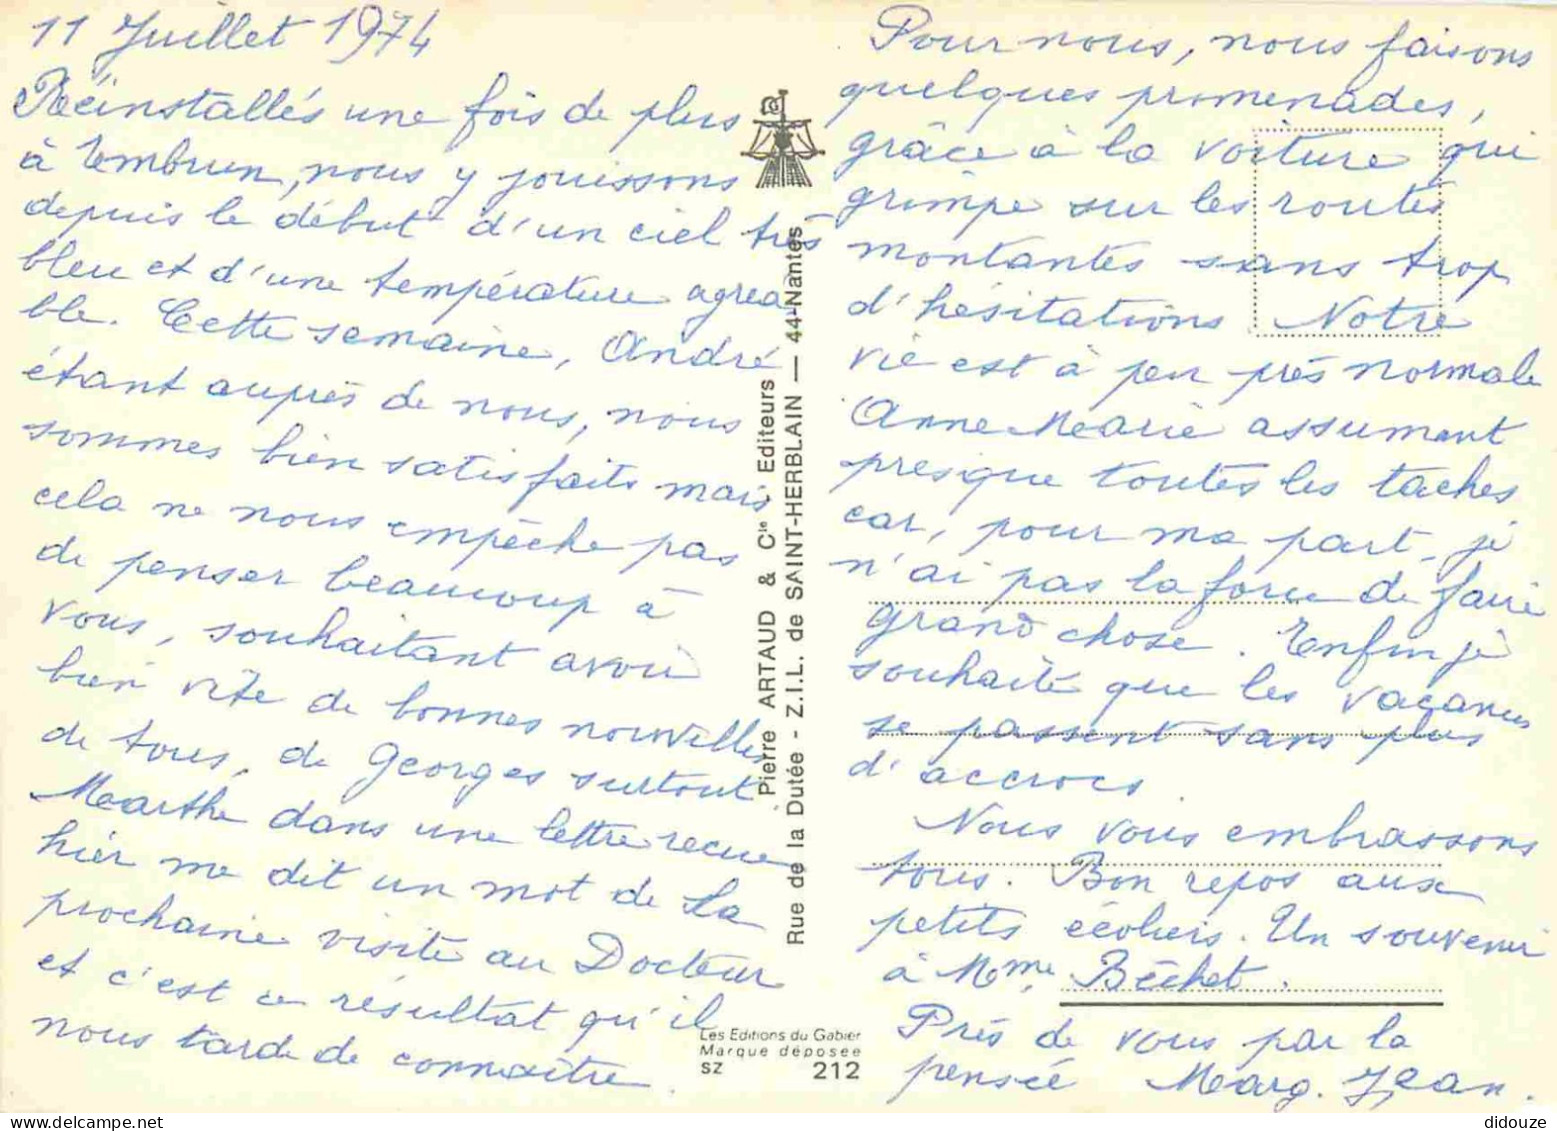 11 Juillet 1974
Réinstallés une fois de plus
à Embrun, nous y jouissons
depuis le début d'un ciel très
bleu et d'une température agréa
ble. Cette semaine, André
étant auprès de nous, nous
sommes bien satisfaits mais
cela ne nous empêche pas
de penser beaucoup à
vous, souhaitant avoir
bien vite de bonnes nouvelles
de tous, de Georges surtout.
Marthe dans une lettre reçue
hier me dit un mot de sa
prochaine visite au Docteur
et c'est ce résultat qu'il
nous tarde de connaître.
Pierre ARTAUD & Cie Editeurs
Rue de la Dutée - Z.I.L. de SAINT-HERBLAIN — 44-Nantes
Les Editions du Gabier
Marque déposée
SZ 212
Pour nous, nous faisons
quelques promenades,
grâce à la voiture qui
grimpe sur les routes
montantes sans trop
d'hésitations. Notre
vie est à peu près normale
Anne Marie assumant
presque toutes les taches
car, pour ma part, je
n'ai pas la force de faire
grand chose. Enfin je
souhaite que les vacances
se passent sans plus
d'accrocs.
Nous vous embrassons
tous. Bon repos aux
petits écoliers. Un souvenir
à Mme Béchet.
Près de vous par la
pensée Marg. Jean.
didouze